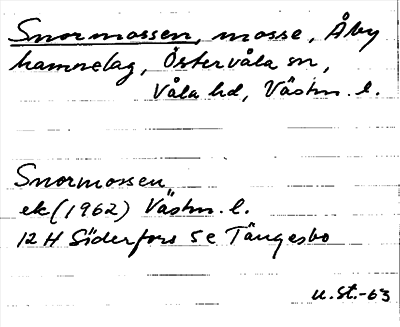 Snormossen, mosse, Åby
hamnelag, Östervåla sn,
Våla hd, Västm. l.
Snormossen
ek (1962) Västm. l.
12 H Söderfors 5e Tängesbo
u.st.-63